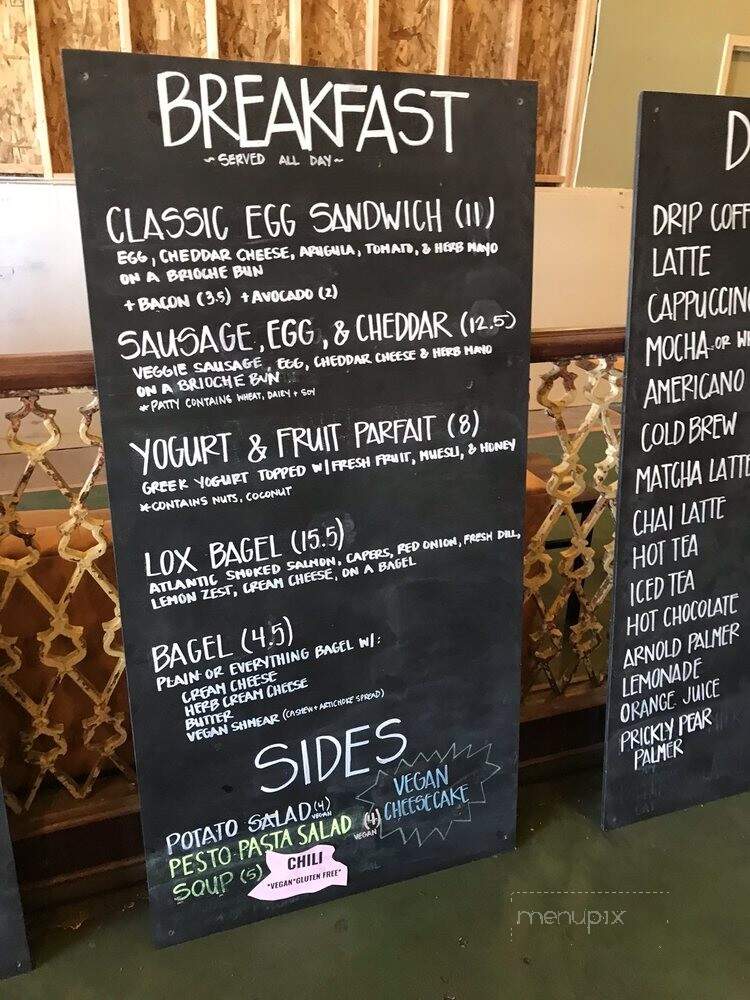 BREAKFAST
~ SERVED ALL DAY ~
CLASSIC EGG SANDWICH (11)
EGG, CHEDDAR CHEESE, ARUGULA, TOMATO, & HERB MAYO
ON A BRIOCHE BUN
+ BACON (3.5) + AVOCADO (2)
SAUSAGE, EGG, & CHEDDAR (12.5)
VEGGIE SAUSAGE, EGG, CHEDDAR CHEESE & HERB MAYO
ON A BRIOCHE BUN
* PATTY CONTAINS WHEAT, DAIRY + SOY
YOGURT & FRUIT PARFAIT (8)
GREEK YOGURT TOPPED W/ FRESH FRUIT, MUESLI, & HONEY
* CONTAINS NUTS, COCONUT
LOX BAGEL (15.5)
ATLANTIC SMOKED SALMON, CAPERS, RED ONION, FRESH DILL,
LEMON ZEST, CREAM CHEESE, ON A BAGEL
BAGEL (4.5)
PLAIN OR EVERYTHING BAGEL W/:
CREAM CHEESE
HERB CREAM CHEESE
BUTTER
VEGAN SHMEAR (CASHEW + ARTICHOKE SPREAD)
SIDES
VEGAN
CHEESECAKE
POTATO SALAD (4)
VEGAN
PESTO PASTA SALAD (4)
VEGAN
SOUP (5)
CHILI
*VEGAN*GLUTEN FREE*
D
DRIP COFF
LATTE
CAPPUCCIN
MOCHA OR WH
AMERICANO
COLD BREW
MATCHA LATTE
CHAI LATTE
HOT TEA
ICED TEA
HOT CHOCOLATE
ARNOLD PALMER
LEMONADE
ORANGE JUICE
PRICKLY PEAR
PALMER
menupix